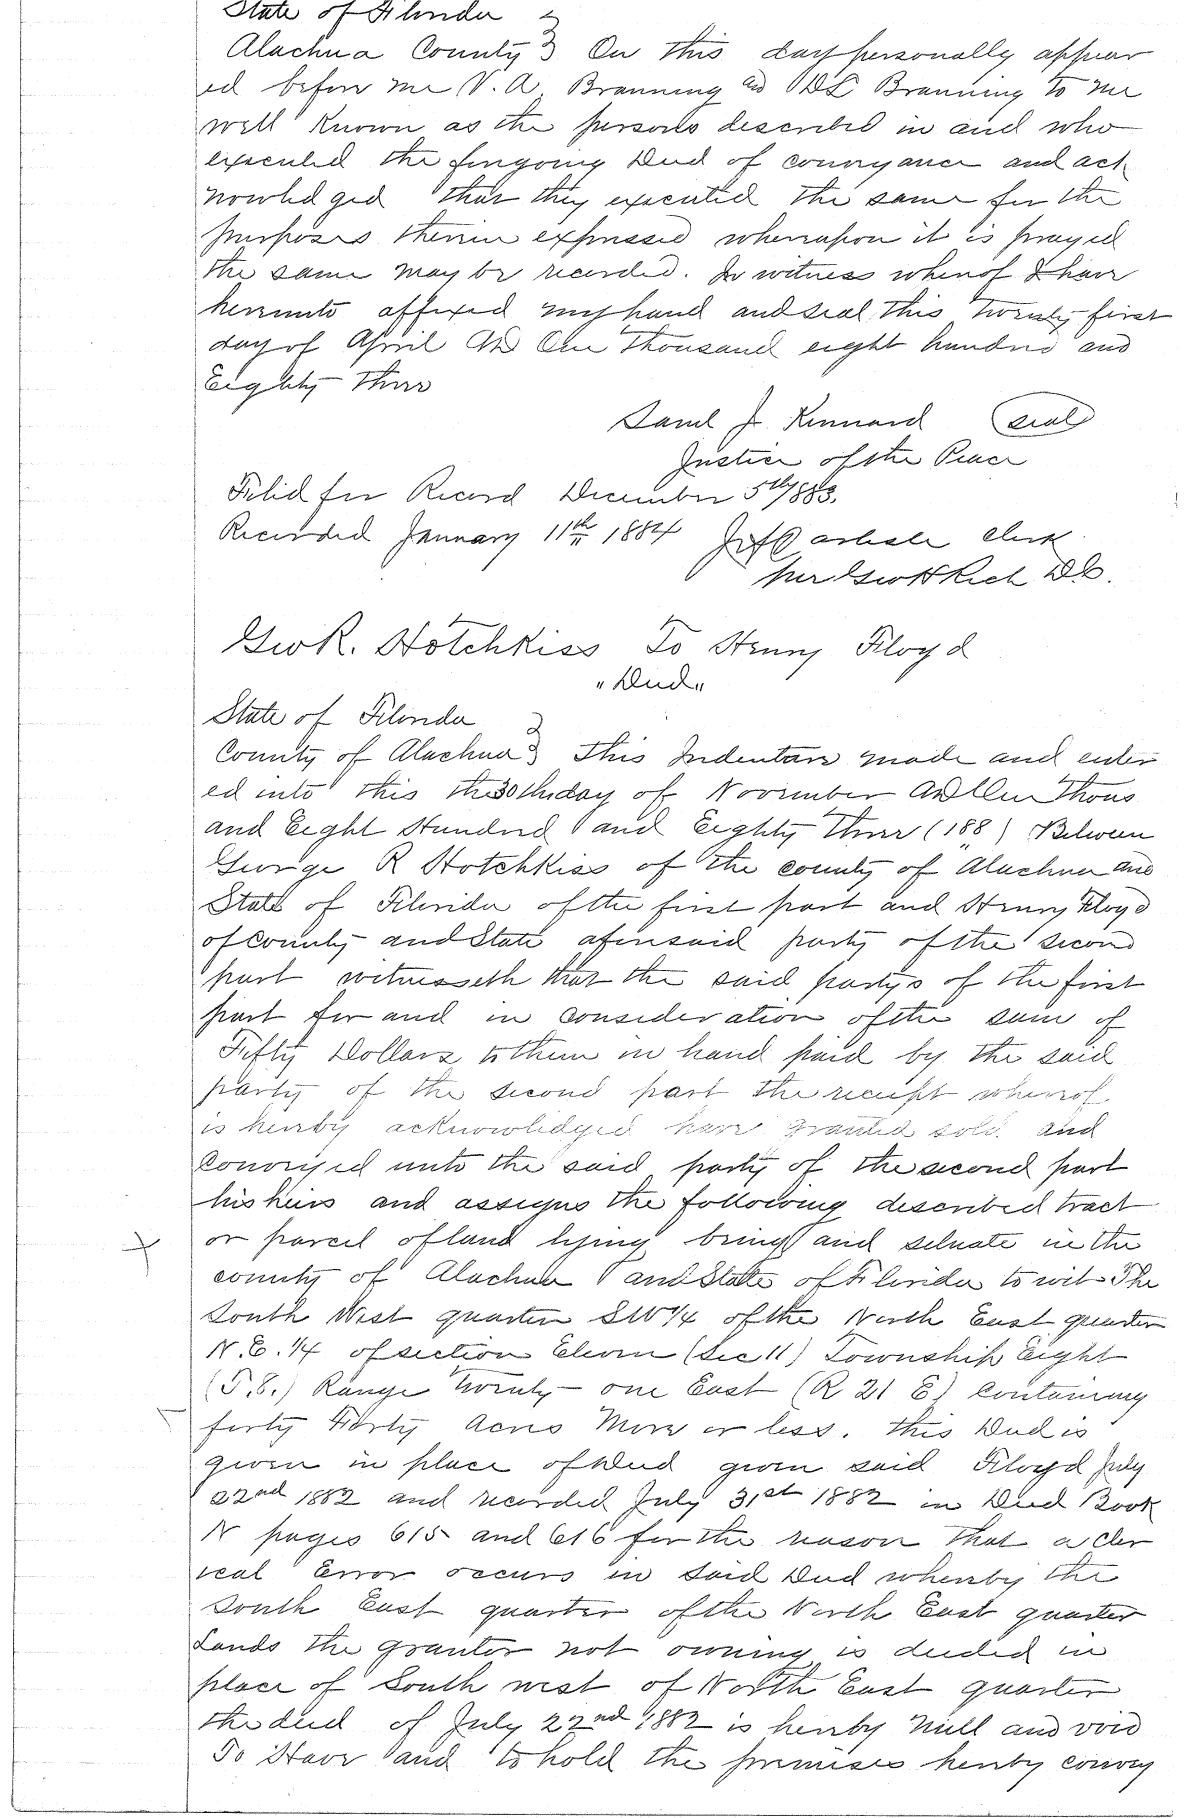 State of Florida }
Alachua County } On this day personally appear
ed before me V. A. Branning and D L Branning to me
well Known as the persons described in and who
executed the forgoing Deed of conveyance and ack
nowledged that they executed the same for the
purposes therein expressed whereupon it is prayed
the same may be recorded. In witness whereof I have
hereunto affixed my hand and seal this Twenty first
day of April AD One Thousand eight hundred and
Eighty Three
Saml J. Kennard (seal)
Justice of the Peace
Filed for Record December 5th/883.
Recorded January 11th 1884 Carlisle Clerk
per Geo H Rich D.C.
Geo R. Hotchkiss To Henry Floyd
"Deed"
State of Florida }
County of Alachua } This Indenture made and enter
ed into this the 30th day of November AD One Thous
and Eight Hundred and Eighty Three (188 ) Between
George R Hotchkiss of the county of Alachua and
State of Florida of the first part and Henry Floyd
of County and State aforesaid party of the second
part witnesseth that the said partys of the first
part for and in consideration of the sum of
Fifty Dollars to them in hand paid by the said
party of the second part the receipt whereof
is hereby acknowledged have granted sold and
Conveyed unto the said party of the second part
his heirs and assigns the following described tract
or parcel of land lying being and situate in the
county of Alachua and State of Florida to wit The
South West quarter SW 1/4 of the North East quarter
N.E. 1/4 of section Eleven (Sec 11) Township Eight
(T.8.) Range Twenty-one East (R 21 E) Containing
forty Forty Acres More or less. This Deed is
given in place of Deed given said Floyd July
22nd 1882 and recorded July 31st 1882 in Deed Book
N pages 615 and 616 for the reason that a cler
ical Error occurs in Said Deed whereby the
South East quarter of the North East quarter
Lands the grantor not owning is deeded in
place of South west of North East quarter
the deed of July 22nd 1882 is hereby Null and void
To Have and to hold the premises hereby convey